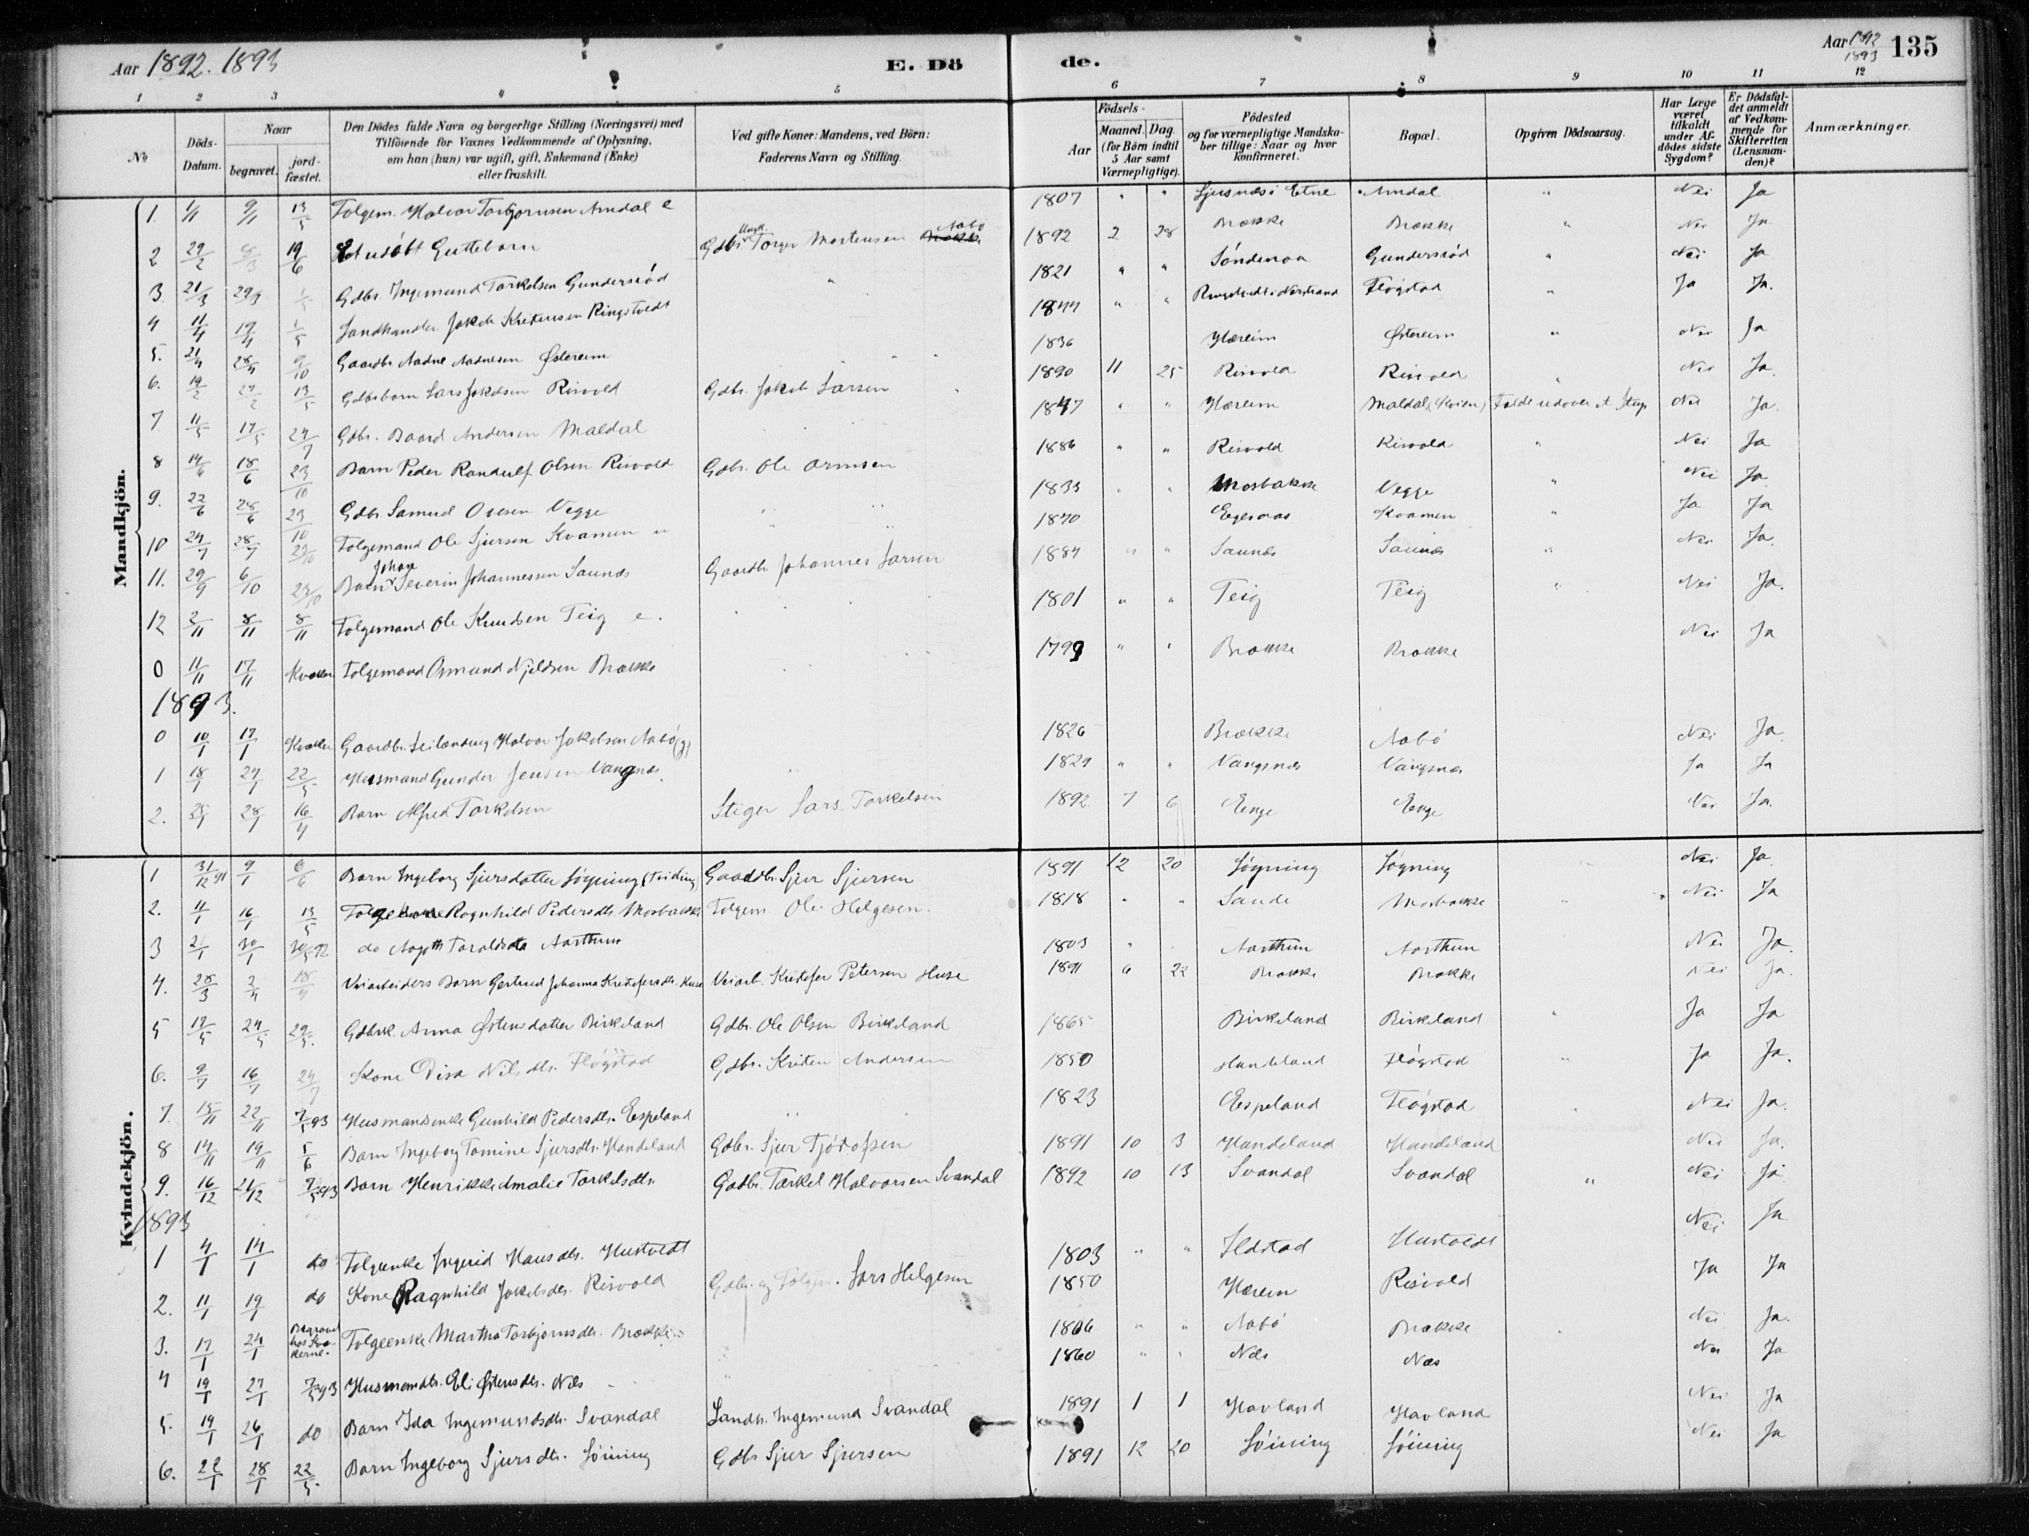 Aar 1892. 1893 E. Dö de. Aar 1892 1893 135
1 2 3 4 5 6 7 8 9 10 11 12
No Döds-Datum. Naar begravet. jord-fæstet. Den Dödes fulde Navn og borgerlige Stilling (Næringsvei) med Tilföiende for Vaxnes Vedkommende af Oplysning, om han (hun) var ugift, gift, Enkemand (Enke) eller fraskilt. Ved gifte Koner: Mandens, ved Börn: Faderens Navn og Stilling. Födsels- Aar Maaned. Dag. (for Börn indtil 5 Aar samt Værnepligtige). Födested og for værnepligtige Mandskaber tillige: Naar og hvor konfirmeret. Bopæl. Opgiven Dödsaarsag. Har Læge været tilkaldt under Afdödes sidste Sygdom? Er Dödsfaldet anmeldt af Vedkommende for Skifteretten (Lensmanden)? Anmærkninger.
Mandkjön.
1. 1/1 9/1 13/5 Folgem. Halvor Torbjornsen Arndal e 1807 " " i Etne Arndal " Nei Ja
2 29/2 19/6 Et udöbt Guttebarn Gdbr. Torger Mortensen Aabö 1892 2 28 Brække Brække " Nei Ja
3. 21/3 29/3 1/5 Gdbr. Ingemund Torkelsen Gundersröd " 1821 " " Söndenaa Gundersröd " Nei Ja
4 11/4 19/4 1/5 Landhandler Jakob Kristensen Ringstvedt 1844 " " Nerstrand Flögstad " Ja Ja.
5. 21/4 28/4 9/10 Gaardbr. Aadne Aadnesen Östereim 1836 Hæreim Östereim " Nei Ja
6. 19/2 27/2 13/5 Gdbrbarn Lars Jakobsen Risvold Gdbr. Jakob Larsen 1890 11 25 Risvold Risvold " Nei Ja.
7 11/5 17/5 24/7 Gdbr. Baard Andersen Maldal 1847 " " Hæreim Maldal (Kvien) Faldt udover et Stup Nei Ja.
8 14/6 18/6 23/10 Barn Peder Randulf Olsen Risvold Gdbr. Ole Ormsen 1886 " " Risvold Risvold " Nei Ja
9. 22/6 28/6 23/10 Gdbr Samuel Ovesen Vegge 1833 " " Mosbakke Vegge " Nei Ja
10 24/7 28/7 23/10 Folgemand Ole Sjursen Kvamen 1870 Egernæs Kvamen " Ja Ja
11. 29/9 6/10 23/10 Barn Johan Severin Johannessen Saunæs Gaardbr. Johannes Larsen 1884 " " Saunæs Saunæs " Nei Ja.
12 2/11 8/11 8/11 Folgemand Ole Knudsen Teig e. 1801 " " Teig Teig " Nei Ja.
0 11/11 17/11 Kvæker Folgemand Osmund Njeldsen Brække 1799 " " Brække Brække Nei Ja
1893.
0 10/1 17/1 Kvæker Gaardbr. Leilænding Halvor Jakobsen Aabö (g) 1826 Brække Aabö Nei Ja.
1 18/1 27/1 22/5 Husmand Gunder Jensen Vangnæs. " 1829 " " Vangsnæs Vangsnæs Ja Ja
2. 25/1 28/1 16/4 Barn Alfred Torkelsen Stiger Lars Torkelsen 1892. 7 6 Eenge Eenge Nei Ja.
Kvindekjön.
1 31/12 91 9/1 6/6 Barn Ingeborg Sjursdatter Löyning (tviding) Gaardbr. Sjur Sjursen 1891 12 20 Löyning Löyning Nei Ja.
2. 11/1 16/1 13/5 Folgekone Ragnhild Pedersdtr. Mosbakke Folgem. Ole Helgesen. 1818 " " Sande Mosbakke Nei Ja
3 21/1 30/1 30/5 92 do Aagoth Taraldsdtr Aarthun 1803 " Aarthun Aarthun Nei Ja.
4. 28/3 2/4 18/4 Veiarbeiders Barn Gertrud Johanna Kristofersdtr. Huse Veiarb. Kristofer Petersen Huse 1891 6 22 Brække Brække Nei Ja.
5 19/5 24/5 29/5 Gdbrk. Anna Östensdatter Birkeland Gdbr. Ole Olsen Birkeland 1865 Birkeland Birkeland " Ja Ja
6. 9/7 16/7 24/7 Kone Disa Nilsdtr. Flögstad Gdbr. Kristen Andersen 1850 Handeland Flögstad " Ja Ja.
7. 15/11 22/11 7/5 93 Husmandsenke Gunhild Pedersdtr. Espeland " 1823 Espeland Flögstad Nei Ja.
8 14/11 19/11 5/6 Barn Ingeborg Tomine Sjursdtr. Handeland Gdbr. Sjur Tjödofsen 1891 10 3 Handeland Handeland Nei Ja.
9. 16/12 21/12 7/5 93 Barn Henrikke Amalie Torkelsdtr. Gadbr. Torkel Halvorsen Svandal 1892 10 13 Svandal Svandal " Nei Ja
1893
1 4/1 14/1 do Folgeenke Ingerid Hansdtr. Hustvedt 1803 " " Ilstad Hustvedt Nei Ja
2. 11/1 19/1 do Kone Ragnhild Jakobsdtr. Risvold Gdbr. og Folgem. Lars Helgesen 1850 Hæreim Risvold Ja Ja
3. 17/1 24/1 Begravd hos Kvækerne. Folgeenke Martha Torbjörnsdtr. Brække. 1806 " " Aabö Brække Nei Ja.
4 19/1 27/1 7/5 93 Husmandsdtr. Eli Östensdtr. Næs " 1860 " " Næs Næs Nei Ja
5. 19/1 26/1 do Barn Ida Ingemundsdtr. Svandal Landh. Ingemund Svandal 1891 1 1 Havland Havland Nei Ja
6. 22/1 28/1 22/5 Barn Ingeborg Sjursdtr. Löining Gdbr Sjur Sjursen 1891 12 20 Löining Löining Nei Ja